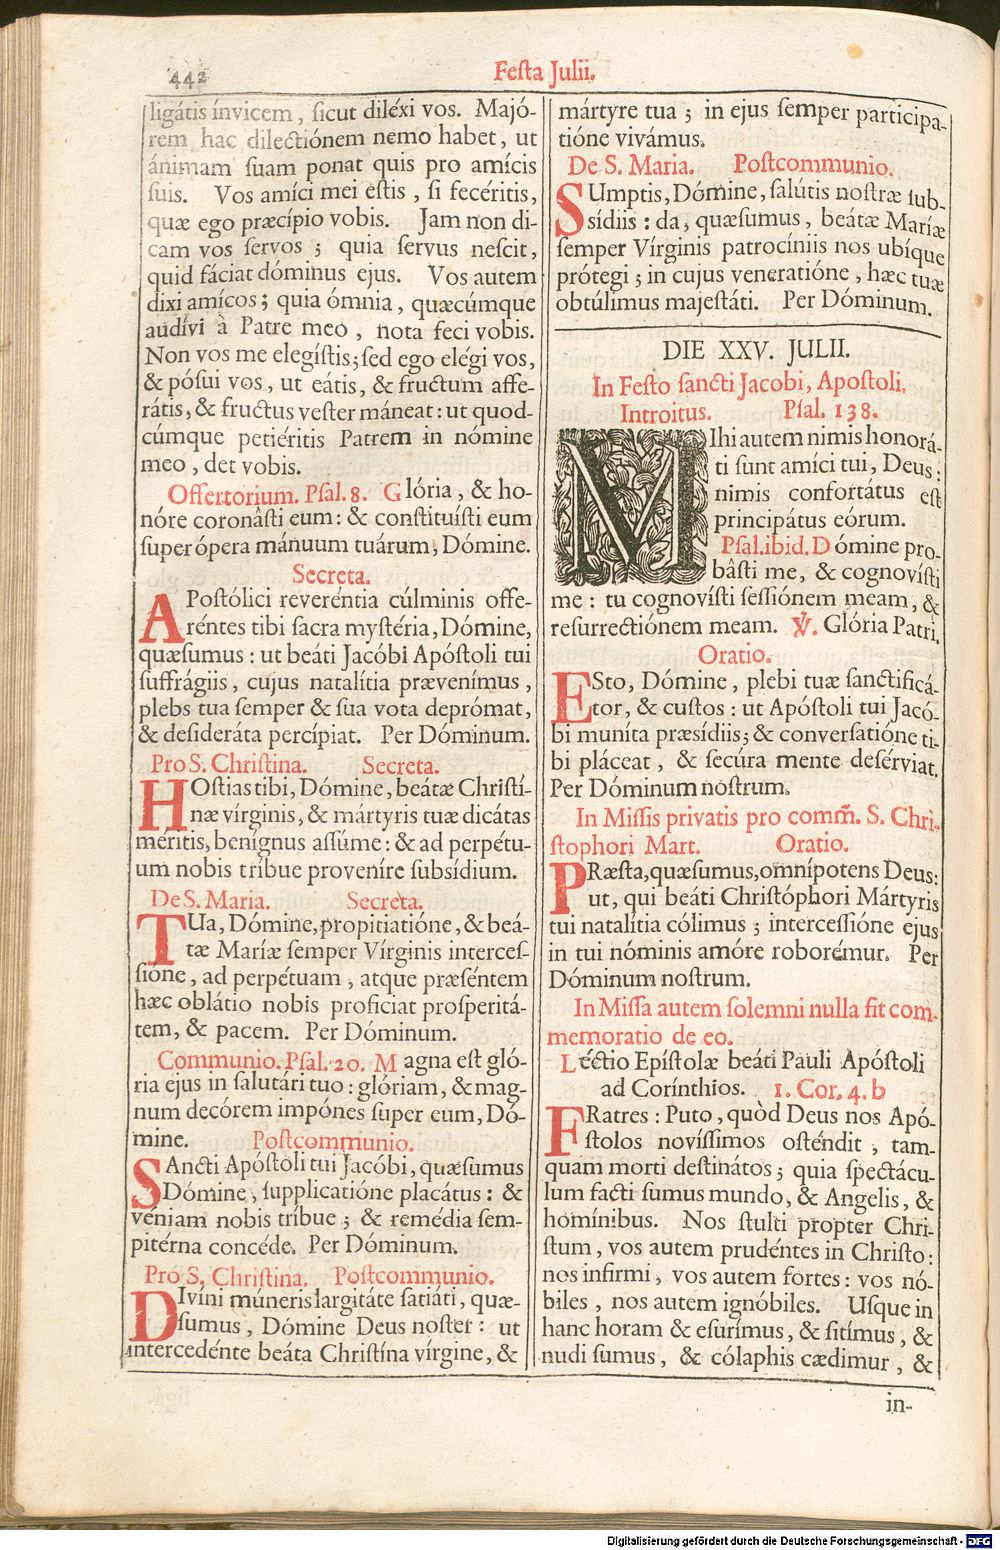 442
Festa Julii.
ligátis ínvicem, sicut diléxi vos. Majó-
rem hac dilectiónem nemo habet, ut
ánimam suam ponat quis pro amícis
suis. Vos amíci mei estis, si fecéritis,
quæ ego præcípio vobis. Jam non di-
cam vos servos; quia servus nescit,
quid fáciat dóminus ejus. Vos autem
dixi amícos; quia ómnia, quæcúmque
audívi à Patre meo, nota feci vobis.
Non vos me elegístis; sed ego elégi vos,
& pósui vos, ut eátis, & fructum affe-
rátis, & fructus vester máneat: ut quod-
cúmque petiéritis Patrem in nómine
meo, det vobis.
Offertorium. Psal. 8. Glória, & ho-
nóre coronâsti eum: & constituísti eum
super ópera mánuum tuárum, Dómine.
Secreta.
APostólici reveréntia cúlminis offe-
réntes tibi sacra mystéria, Dómine,
quæsumus: ut beáti Jacóbi Apóstoli tui
suffrágiis, cujus natalítia prævenímus,
plebs tua semper & sua vota deprómat,
& desideráta percípiat. Per Dóminum.
Pro S. Christina. Secreta.
HOstias tibi, Dómine, beátæ Christí-
næ vírginis, & mártyris tuæ dicátas
méritis, benígnus assúme: & ad perpétu-
um nobis tríbue proveníre subsídium.
De S. Maria. Secreta.
TUa, Dómine, propitiatióne, & beá-
tæ Maríæ semper Vírginis interces-
sióne, ad perpétuam, atque præséntem
hæc oblátio nobis proficiat prosperitá-
tem, & pacem. Per Dóminum.
Communio. Psal. 20. Magna est gló-
ria ejus in salutári tuo: glóriam, & mag-
num decórem impónes super eum, Dó-
mine. Postcommunio.
SAncti Apóstoli tui Jacóbi, quæsumus
Dómine, supplicatióne placátus: &
véniam nobis tríbue; & remédia sem-
pitérna concéde. Per Dóminum.
Pro S. Christina. Postcommunio.
DIvíni múneris largitáte satiáti, quæ-
sumus, Dómine Deus noster: ut
intercedénte beáta Christína vírgine, &
mártyre tua; in ejus semper participa-
tióne vivámus.
De S. Maria. Postcommunio.
SUmptis, Dómine, salútis nostræ sub-
sídiis: da, quæsumus, beátæ Maríæ
semper Vírginis patrocíniis nos ubíque
prótegi; in cujus veneratióne, hæc tuæ
obtúlimus majestáti. Per Dóminum.
DIE XXV. JULII.
In Festo sancti Jacobi, Apostoli.
Introitus. Psal. 138.
MIhi autem nimis honorá-
ti sunt amíci tui, Deus:
nimis confortátus est
principátus eórum.
Psal. ibid. Dómine pro-
bâsti me, & cognovísti
me: tu cognovísti sessiónem meam, &
resurrectiónem meam. ℣. Glória Patri.
Oratio.
ESto, Dómine, plebi tuæ sanctificá-
tor, & custos: ut Apóstoli tui Jacó-
bi muníta præsídiis; & conversatióne ti-
bi pláceat, & secúra mente desérviat.
Per Dóminum nostrum.
In Missis privatis pro comm̃. S. Chri-
stophori Mart. Oratio.
PRæsta, quæsumus, omnípotens Deus:
ut, qui beáti Christóphori Mártyris
tui natalítia cólimus; intercessióne ejus
in tui nóminis amóre roborémur. Per
Dóminum nostrum.
In Missa autem solemni nulla fit com-
memoratio de eo.
Léctio Epístolæ beáti Pauli Apóstoli
ad Corínthios. 1. Cor. 4. b
FRatres: Puto, quòd Deus nos Apó-
stolos novíssimos osténdit, tam-
quam morti destinátos; quia spectácu-
lum facti sumus mundo, & Angelis, &
homínibus. Nos stulti propter Chri-
stum, vos autem prudéntes in Christo:
nos infirmi, vos autem fortes: vos nó-
biles, nos autem ignóbiles. Usque in
hanc horam & esurímus, & sitímus, &
nudi sumus, & cólaphis cædimur, &
in-
Digitalisierung gefördert durch die Deutsche Forschungsgemeinschaft - DFG